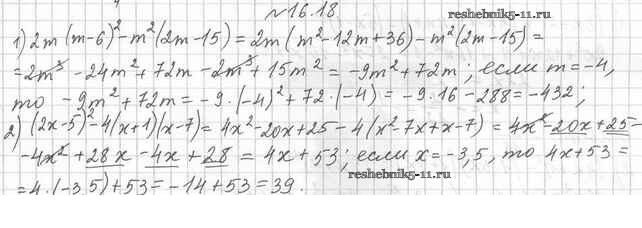 №16.18.
reshebnik5-11.ru
1) 2m(m-6)²-m²(2m-15)=2m(m²-12m+36)-m²(2m-15)=
=2m³-24m²+72m-2m³+15m²=-9m²+72m; если m=-4,
то -9m²+72m=-9·(-4)²+72·(-4)=-9·16-288=-432;
2) (2x-5)²-4(x+1)(x-7)=4x²-20x+25-4(x²-7x+x-7)=4x²-20x+25-
-4x²+28x-4x+28=4x+53; если x=-3,5, то 4x+53=
reshebnik5-11.ru
=4·(-3,5)+53=-14+53=39.